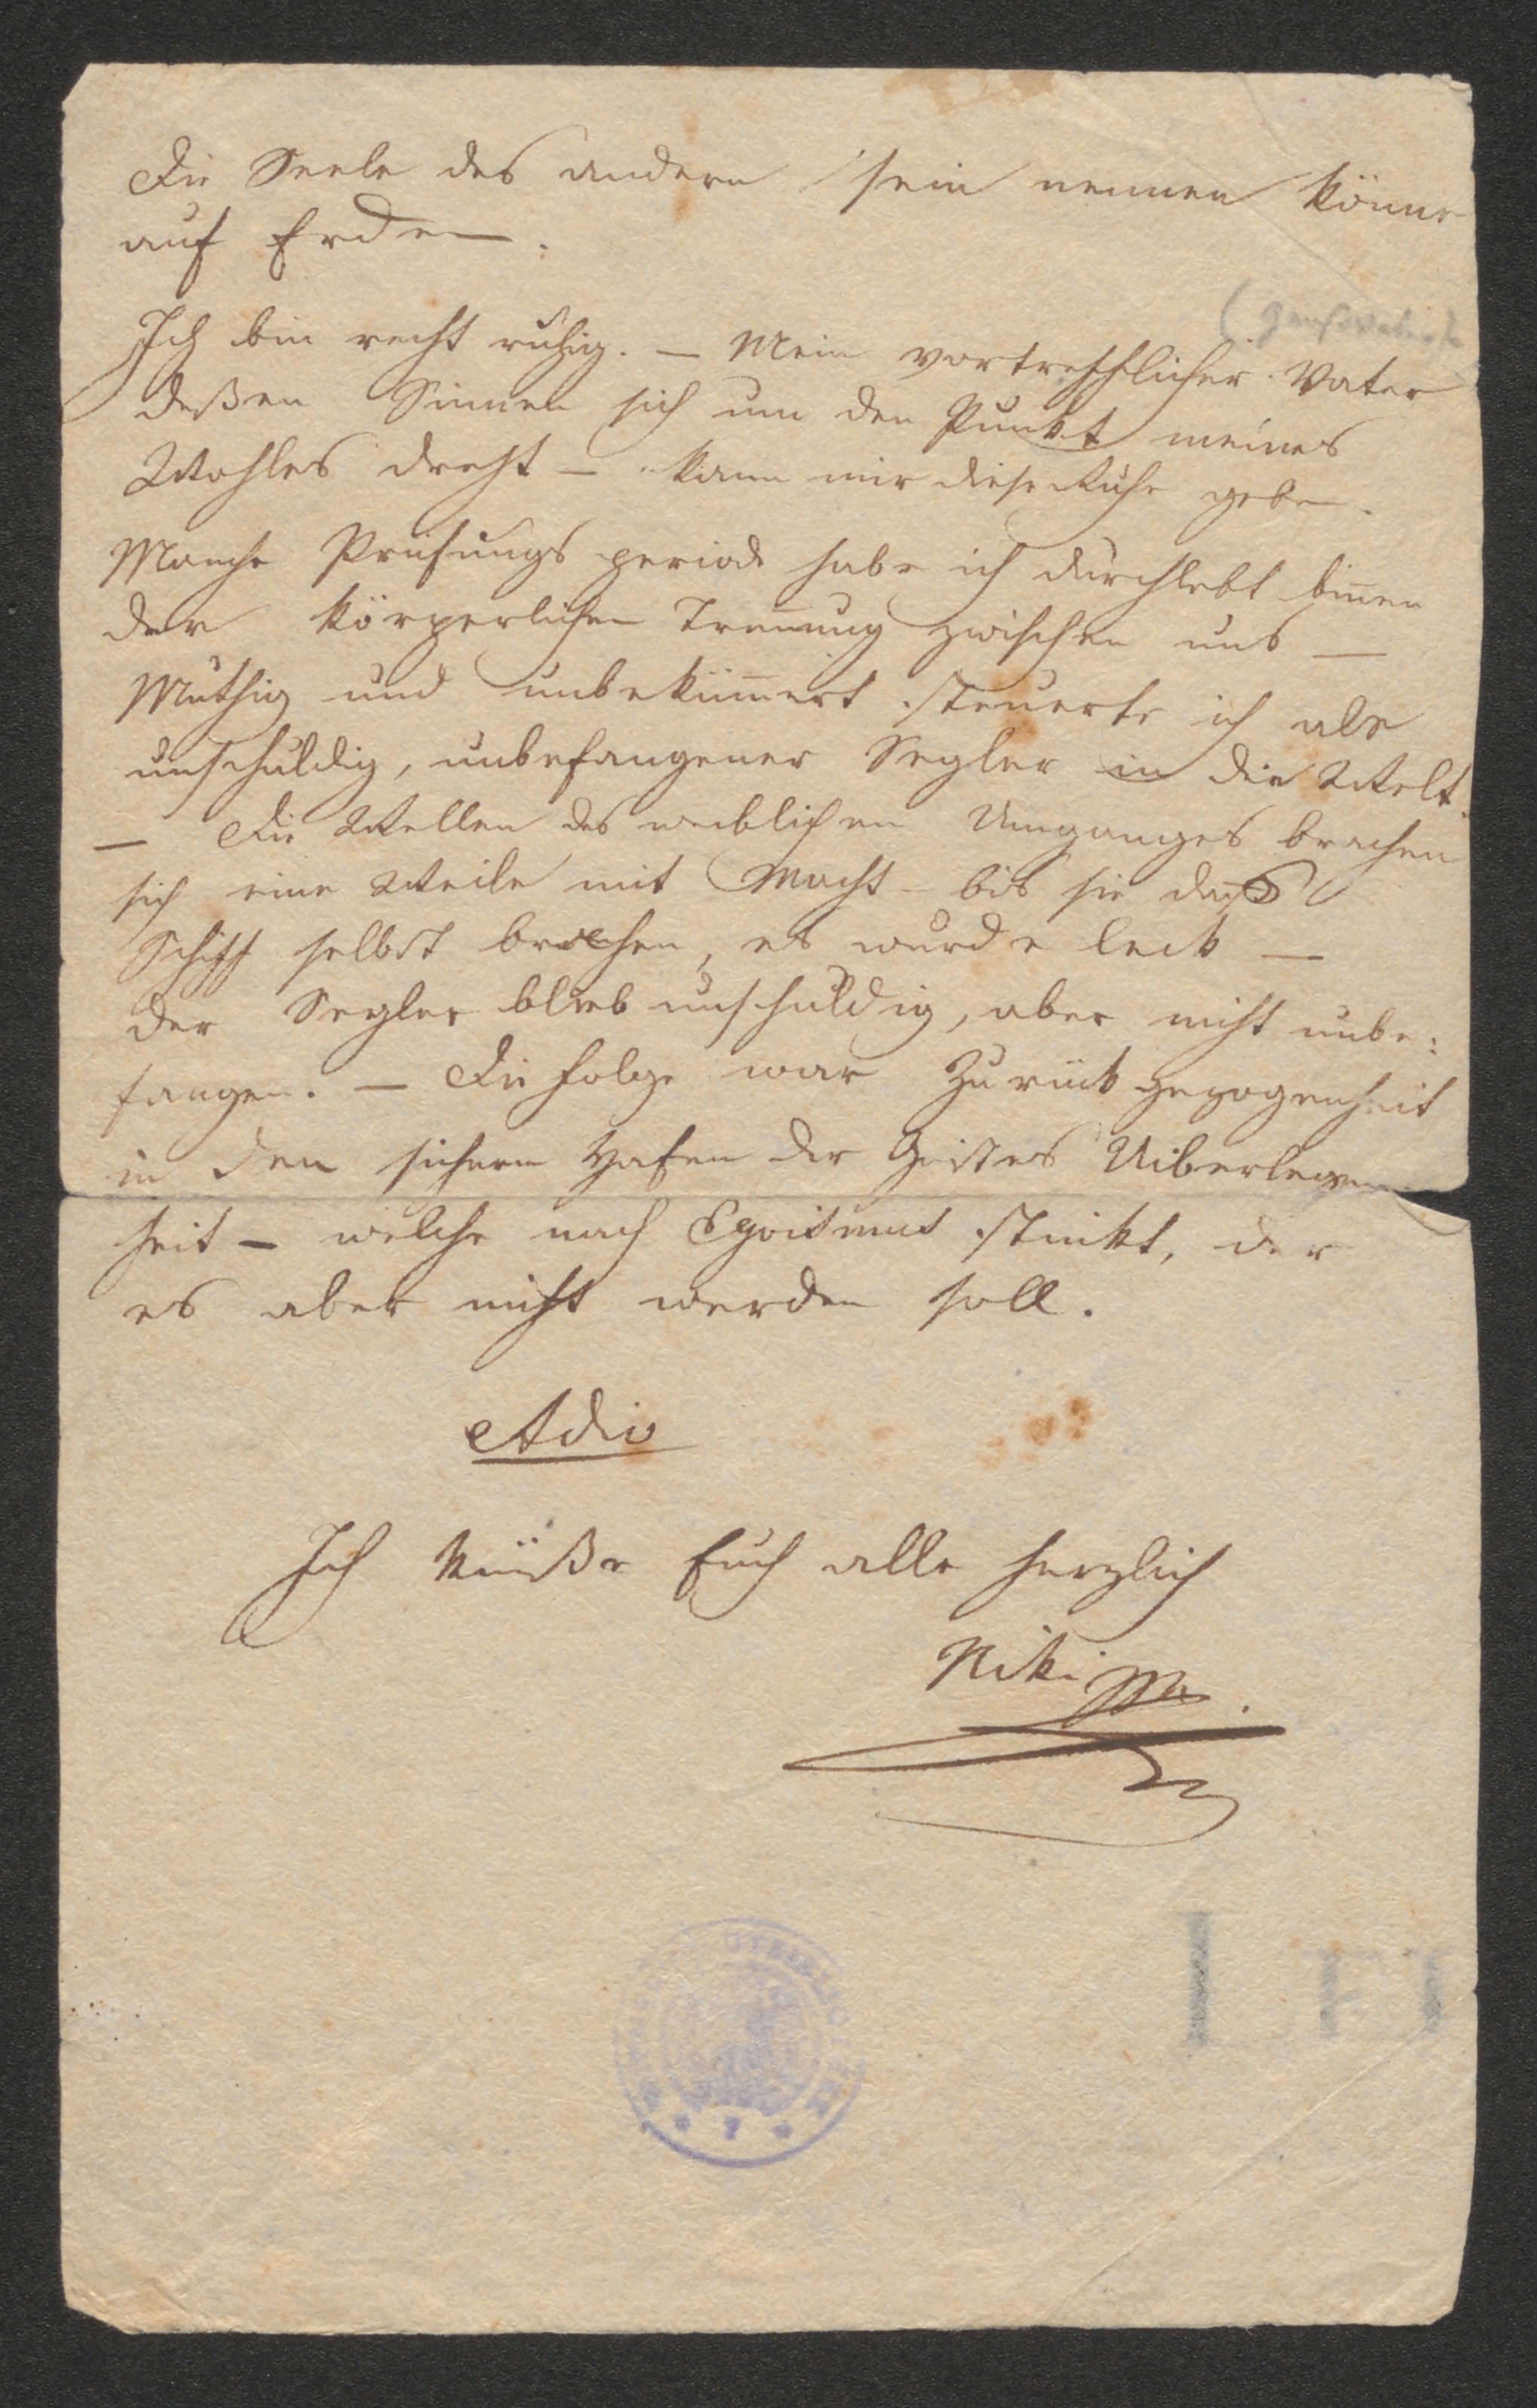 Die Seele des andern sein nennen könne
auf Erden.
Ich bin recht ruhig. — Mein vortrefflicher Vater
deßen Sinnen sich um den Punkt meines
Wohles dreht — kann mir diese Ruhe geben.
Manche Prüfungsperiode habe ich durchlebt binnen
der körperlichen Trennung zwischen uns —
Muthig und unbekümmert steuerte ich als
unschuldig, unbefangener Segler in die Welt.
— Die Wellen des weiblichen Umganges brachen
sich eine Weile mit Macht — bis sie das
Schiff selbst brachen, es wurde leck —
der Segler blieb unschuldig, aber nicht unbe:
fangen. — Die Folge war Zurückgezogenheit
in den sichern Hafen der Geistes Uiberlegen
heit — welche nach Egoismus stinkt, der
es aber nicht werden soll.
Adio
Ich küße Euch alle herzlich
Niki